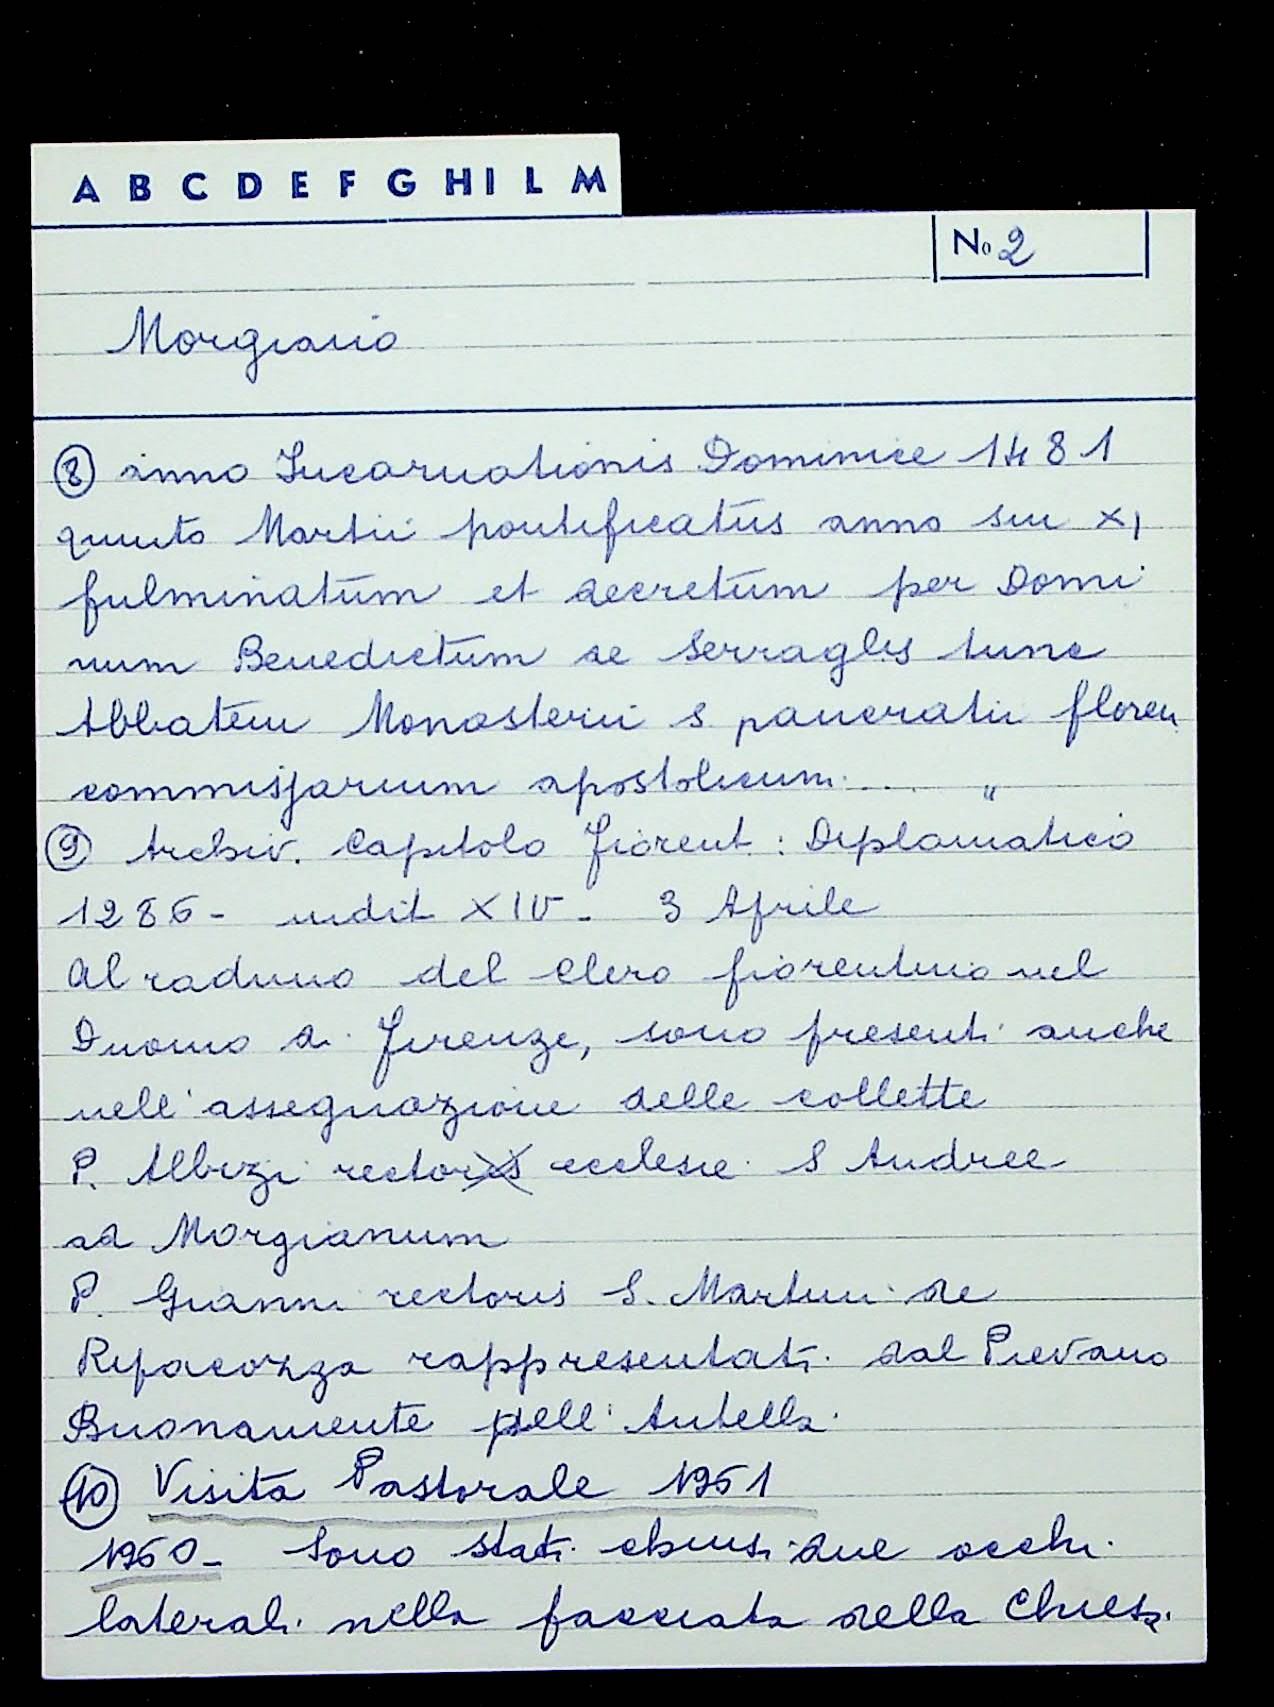 A B C D E F G H I L M
No 2
Morgiano
⑧ anno Incarnationis Dominice 1481
quinto Martii pontificatus anno sui XI
fulminatum et decretum per Domi
num Benedictum de Serraglis tunc
Abbatem Monasterii s pancratii floren
commissarium apostolicum .... "
⑨ Archiv. Capitolo Fiorent: Diplomatico
1286 - indit XIV - 3 Aprile
Al raduno del clero fiorentino nel
Duomo di Firenze, sono presenti anche
nell'assegnazione delle collette
P. Albizi rector ecclesie S Andree
ad Morgianum
P. Gianni rectoris S. Martini de
Ripacozza rappresentati dal Pievano
Buonamente dell'Antella
⑩ Visita Pastorale 1951
1950 - Sono stati chiusi due occhi
laterali nella facciata della Chiesa.